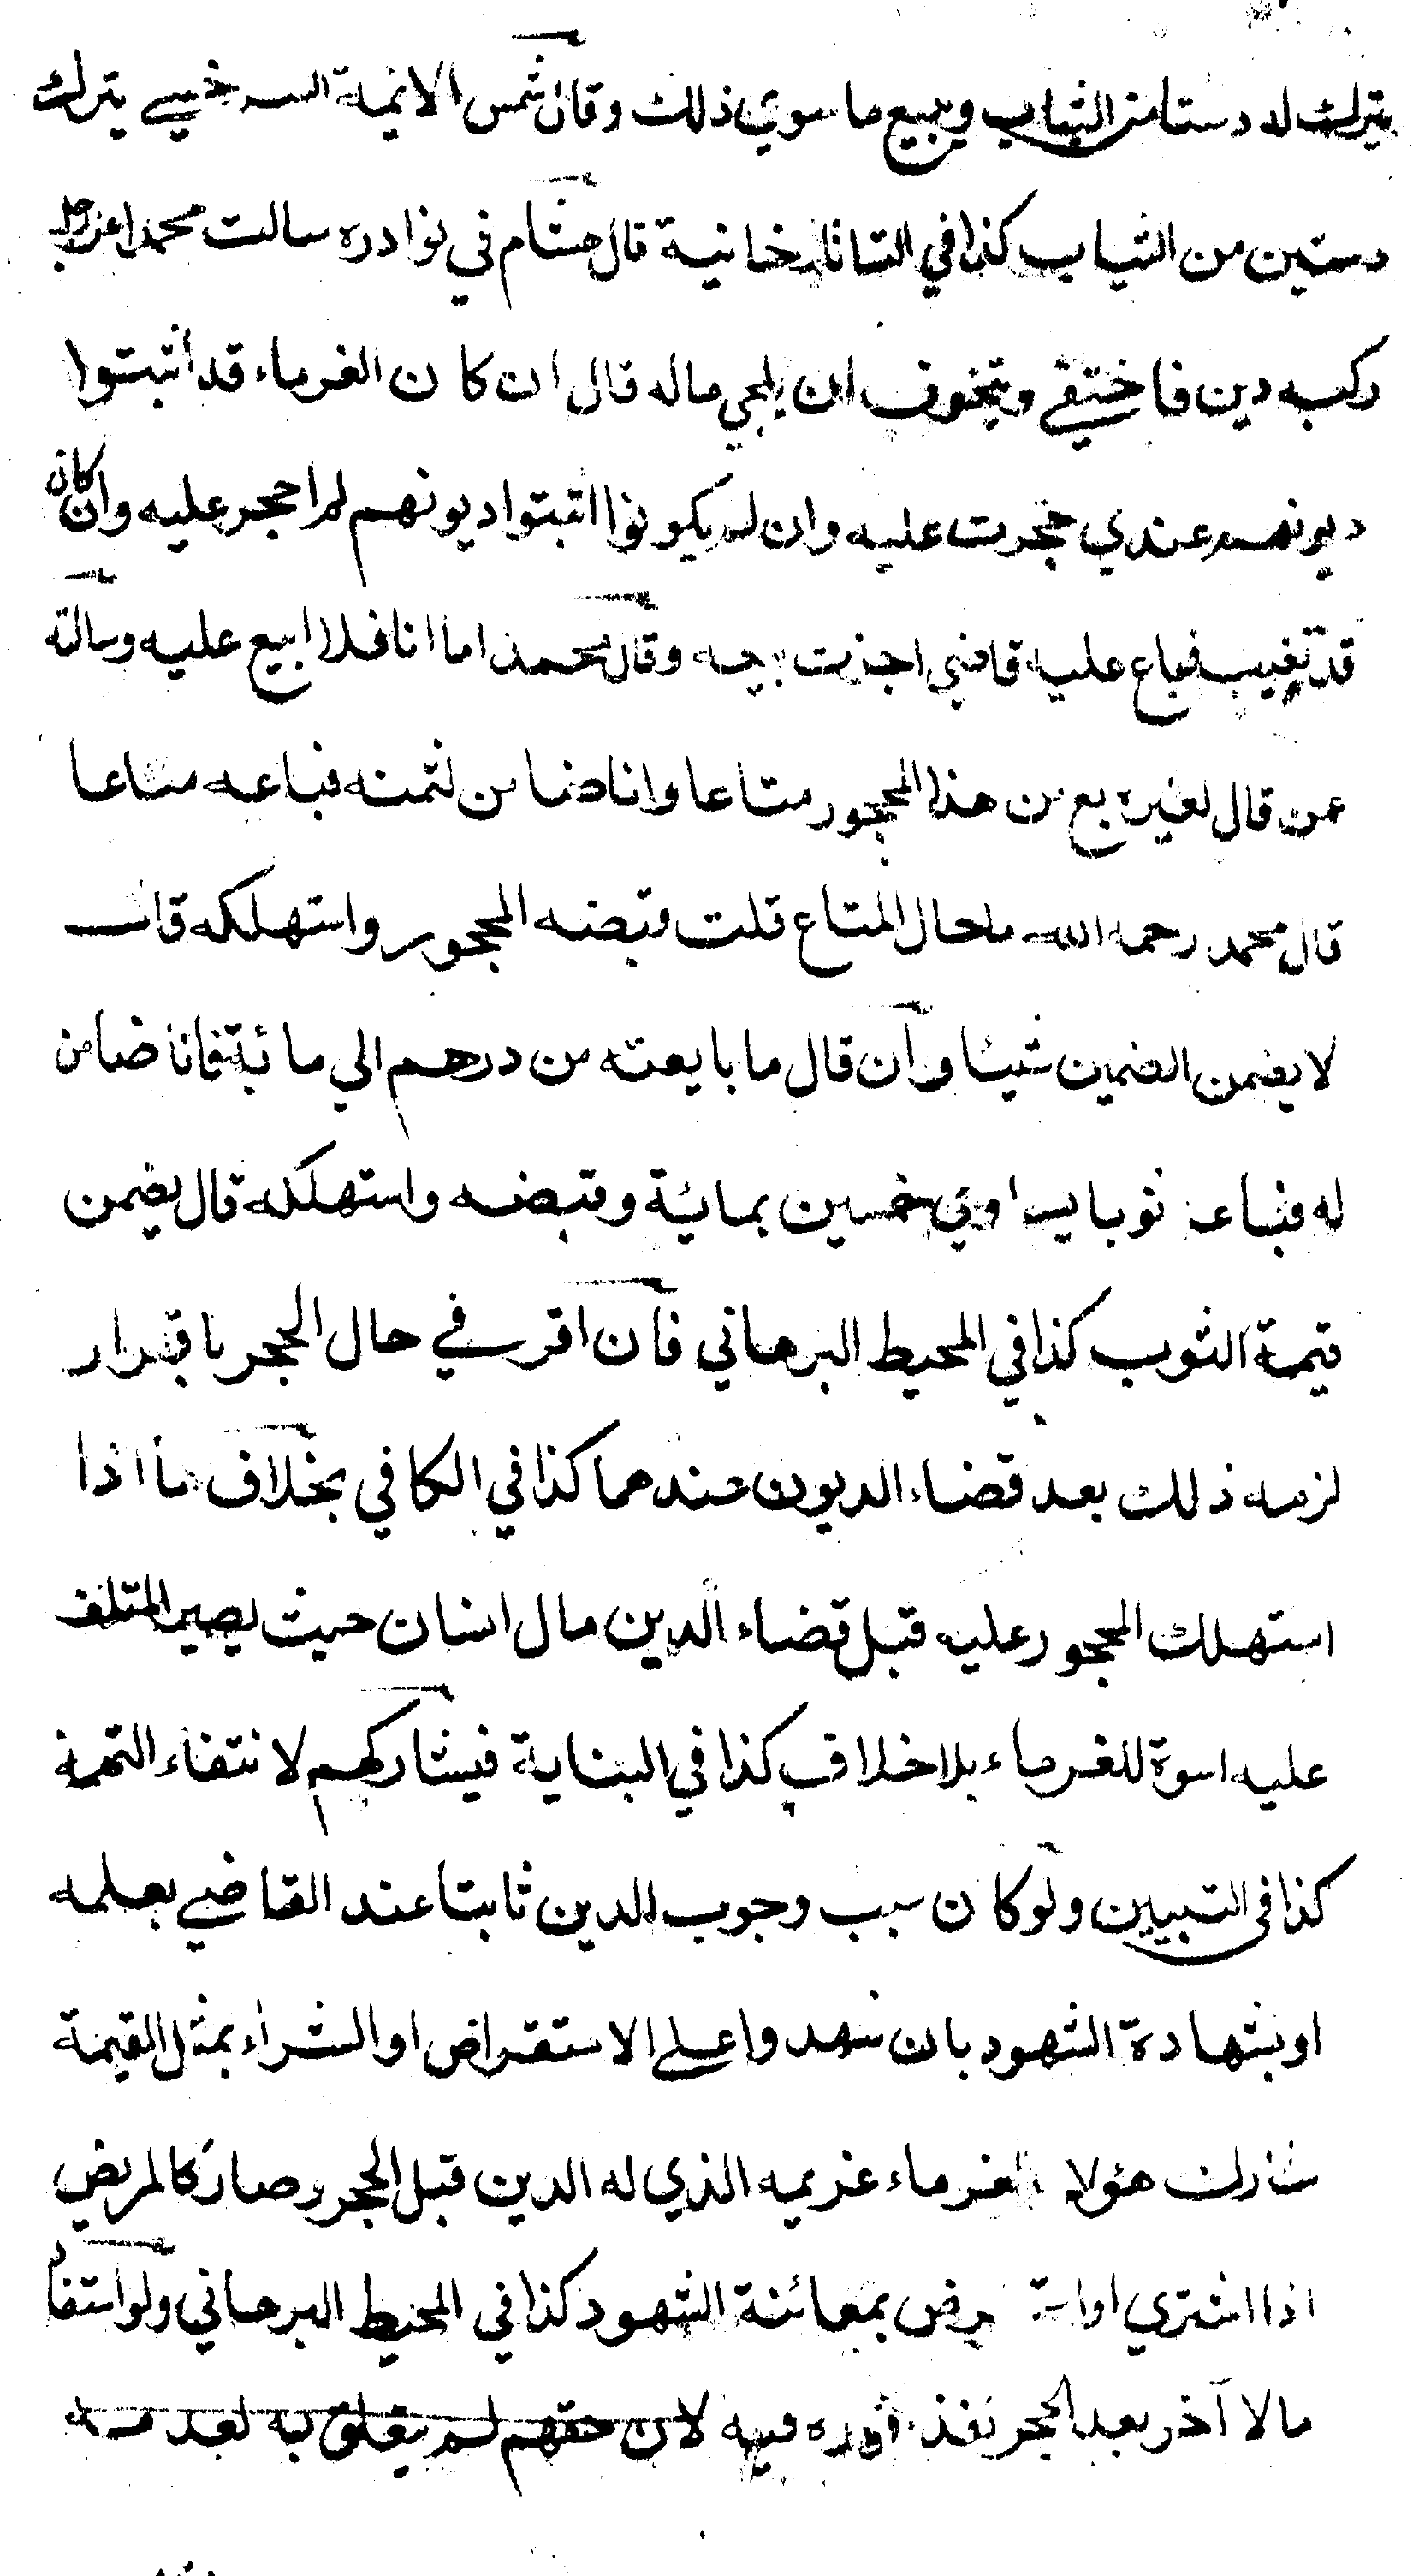 يترك له دستا من الثياب ويبيع ما سوي ذلك وقال شمس الائمة السرخسي يترك
دستين من الثياب كذا في التاتارخانية قال هشام في نوادره سالت محمدا عن رجل
ركبه دين فاختفي ويتخوف ان يلجي ماله قال ان كان الغرماء قد اثبتوا
ديونهم عندي حجرت عليه وان لم يكونوا اثبتوا ديونهم لم احجر عليه وان كان
قد تغيب فباع عليه قاضي اجزت بيعه وقال محمد اما انا فلا ابيع عليه وسالته
عمن قال لغيره بع من هذا المحجور متاعا وانا ضامن لثمنه فباعه متاعا
قال محمد رحمه الله ما حال المتاع قلت قبضه المحجور واستهلكه قال
لا يضمن الضمين شيئا وان قال ما بايعته من درهم الي مائة فانا ضامن
له فباعه ثوبا يساوي خمسين بمائة وقبضه واستهلكه قال يضمن
قيمة الثوب كذا في المحيط البرهاني فان اقر في حال الحجر باقرار
لزمه ذلك بعد قضاء الديون عندهما كذا في الكافي بخلاف ما اذا
استهلك المحجور عليه قبل قضاء الدين مال انسان حيث يصير المتلف
عليه اسوة للغرماء بلا خلاف كذا في البناية فيشاركهم لانتفاء التهمة
كذا في التبيين ولو كان سبب وجوب الدين ثابتا عند القاضي بعلمه
او بشهادة الشهود بان شهدوا علي الاستقراض او الشراء بمثل القيمة
شارك هؤلاء الغرماء غريمه الذي له الدين قبل الحجر وصار كالمريض
اذا اشتري او استقرض بمعائنة الشهود كذا في المحيط البرهاني ولو استفاد
مالا آخر بعد الحجر نفذ اقراره فيه لان حقهم لم يتعلق به لعدمه